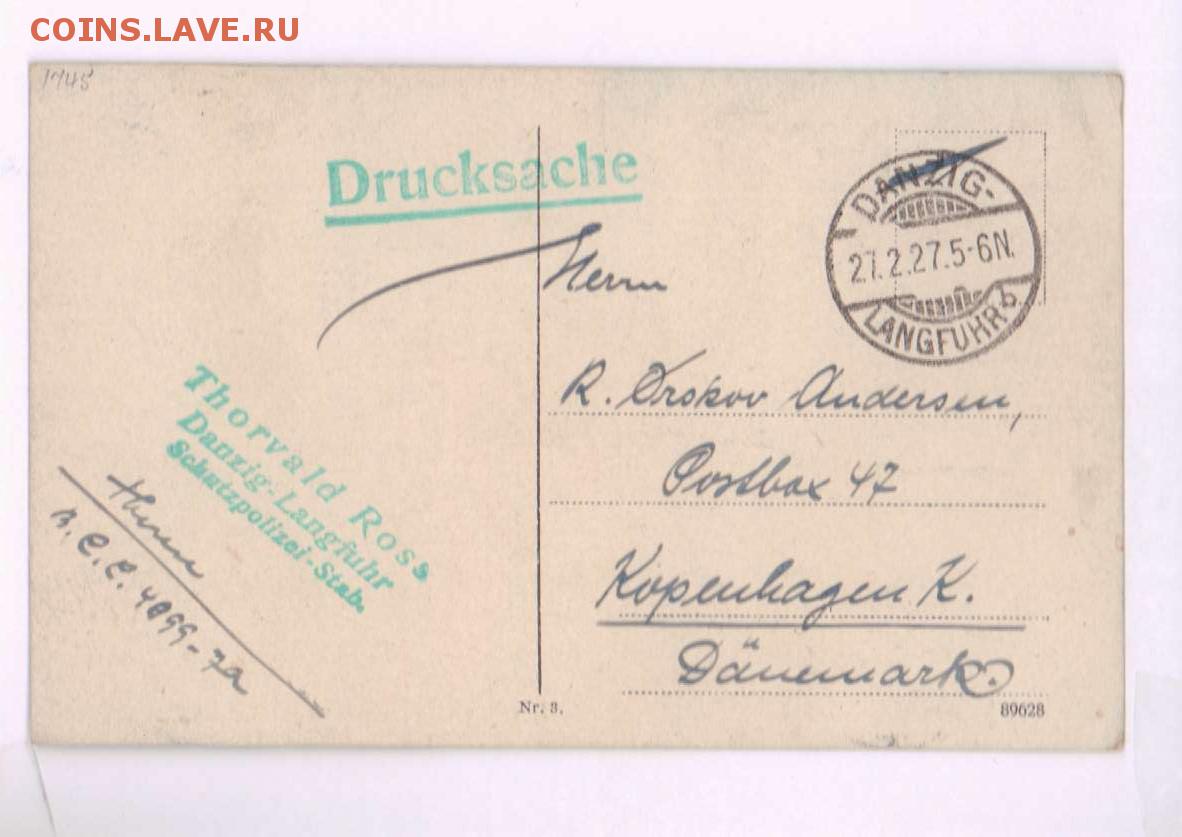 COINS.LAVE.RU
1745
Drucksache
DANZIG-
27.2.27.5-6N.
LANGFUHR b
Herrn
R. Orskov Andersen,
Postbox 47
Kopenhagen K.
Dänemark.
Thorvald Ross
Danzig-Langfuhr
Schutzpolizei-Stab.
4099-7a
Nr. 3.
89628